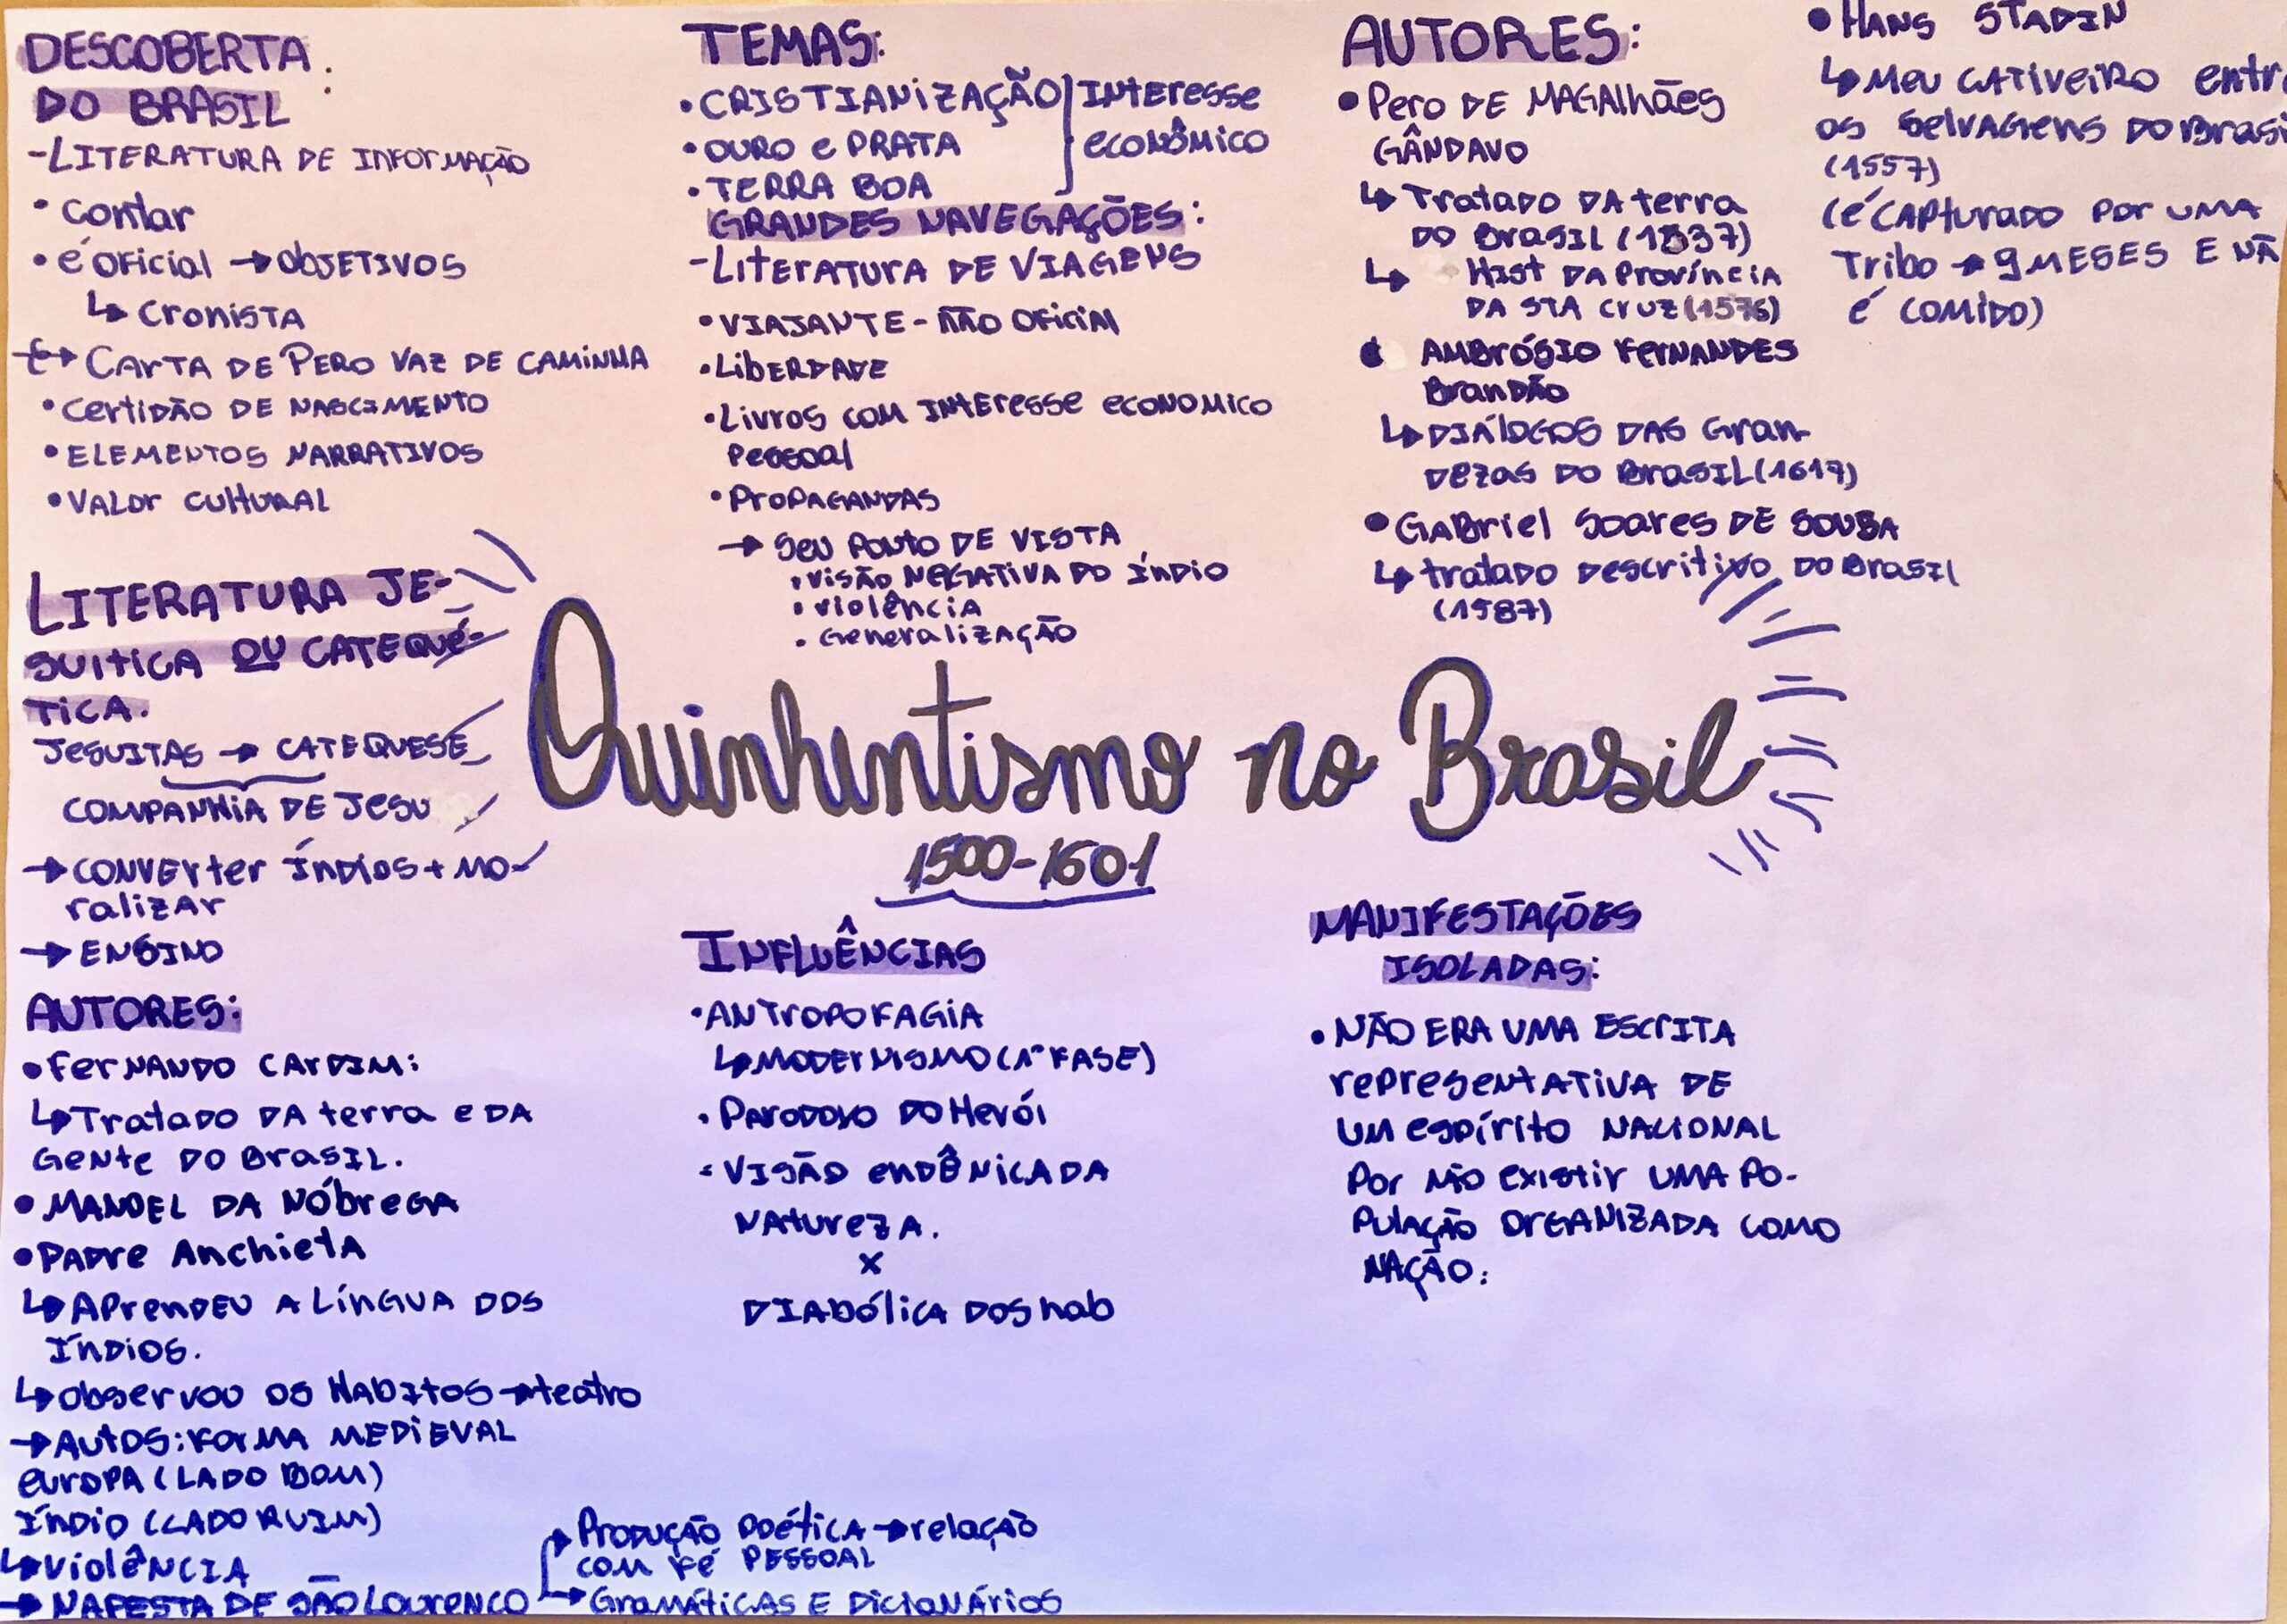 DESCOBERTA
DO BRASIL:
-LITERATURA DE INFORMAÇÃO
• Contar
• é oficial → objetivos
↳ Cronista
↳ CARTA DE PERO VAZ DE CAMINHA
• Certidão DE NASCIMENTO
• ELEMENTOS NARRATIVOS
• VALOR CULTURAL
LITERATURA JE-
SUITICA OU CATEQUÉ-
TICA.
JESUITAS → CATEQUESE
COMPANHIA DE JESU
→ CONVERTER ÍNDIOS + MO-
RALIZAR
→ ENSINO
AUTORES:
• FERNANDO CARDIM:
↳ Tratado DA terra e DA
Gente DO BRASIL.
• MANOEL DA NÓBREGA
• PADRE ANCHIETA
↳ APRENDEU A LÍNGUA DOS
ÍNDIOS.
↳ observou os HABITOS → teatro
→ AUTOS: FORMA MEDIEVAL
EUROPA (LADO BOM)
ÍNDIO (LADO RUIM)
↳ VIOLÊNCIA
→ NA FESTA DE SÃO LOURENCO
→ Produção poética → relação
com Fé PESSOAL
→ Gramáticas E DicionÁrios
TEMAS:
• CRISTIANIZAÇÃO
• OURO e PRATA
• TERRA BOA
INTERESSE
ECONÔMICO
GRANDES NAVEGAÇÕES:
-LITERATURA DE VIAGENS
• VIAJANTE - NÃO OFICIAL
• LIBERDADE
• Livros com INTERESSE ECONOMICO
Pessoal
• PROPAGANDAS
→ SEU PONTO DE VISTA
• VISÃO NEGATIVA DO ÍNDIO
• Violência
• GENERALIZAÇÃO
Quinhentismo no Brasil
1500-1601
INFLUÊNCIAS
• ANTROPOFAGIA
↳ MODERNISMO (1ª FASE)
• PARODOXO DO HERÓI
• VISÃO endêNICA DA
NATUREZA.
X
DIABÓLICA DOS hab
AUTORES:
• Pero DE MAGALHÃES
GÂNDAVO
↳ Tratado DA terra
DO BRASIL (1537)
↳ Hist DA Província
DA STA CRUZ (1576)
• AMBRÓSIO FERNANDES
BRANDÃO
↳ DIÁLOGOS DAS Gran-
DEZAS DO BRASIL (1617)
• GABRIEL SOARES DE SOUSA
↳ tratado descritivo DO BRASIL
(1587)
• HANS STADIN
↳ MEU CATIVEIRO entr
os SELVAGENS DO BRASI
(1557)
(é CAPTURADO POR UMA
Tribo → 9 MESES E NÃ
é COMIDO)
MANIFESTAÇÕES
ISOLADAS:
• NÃO ERA UMA ESCRITA
REPRESENTATIVA DE
UM espírito NACIONAL
Por não existir UMA PO-
PULAÇÃO ORGANIZADA COMO
NAÇÃO.